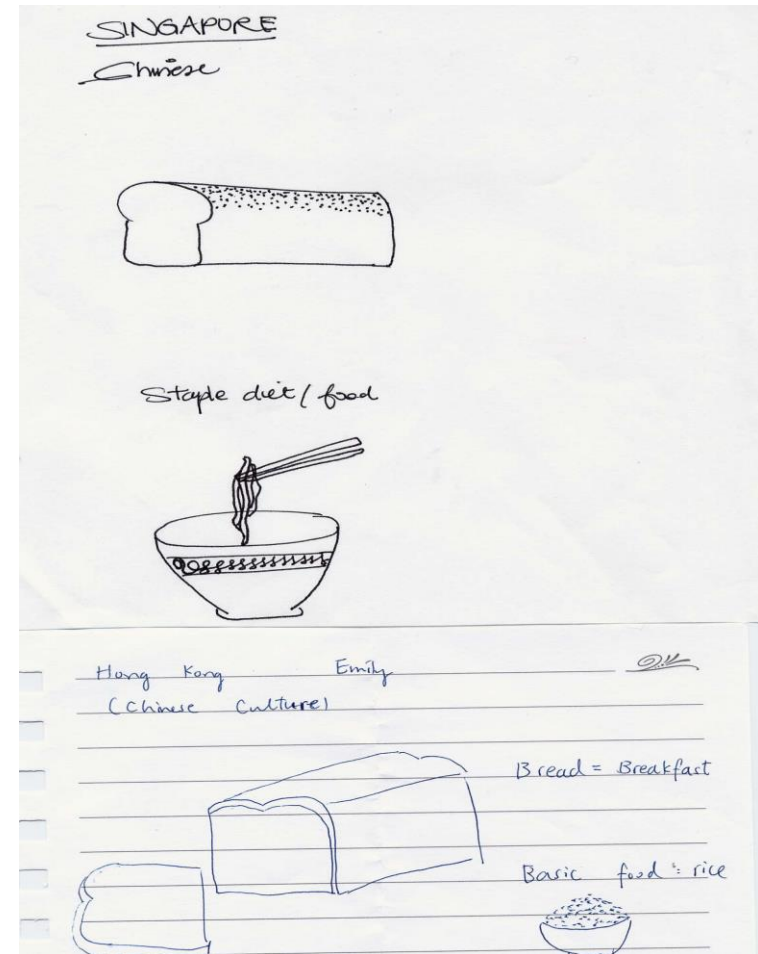 SINGAPORE
Chinese
Staple diet / food
Hong Kong Emily
(Chinese Culture)
Bread = Breakfast
Basic food : rice